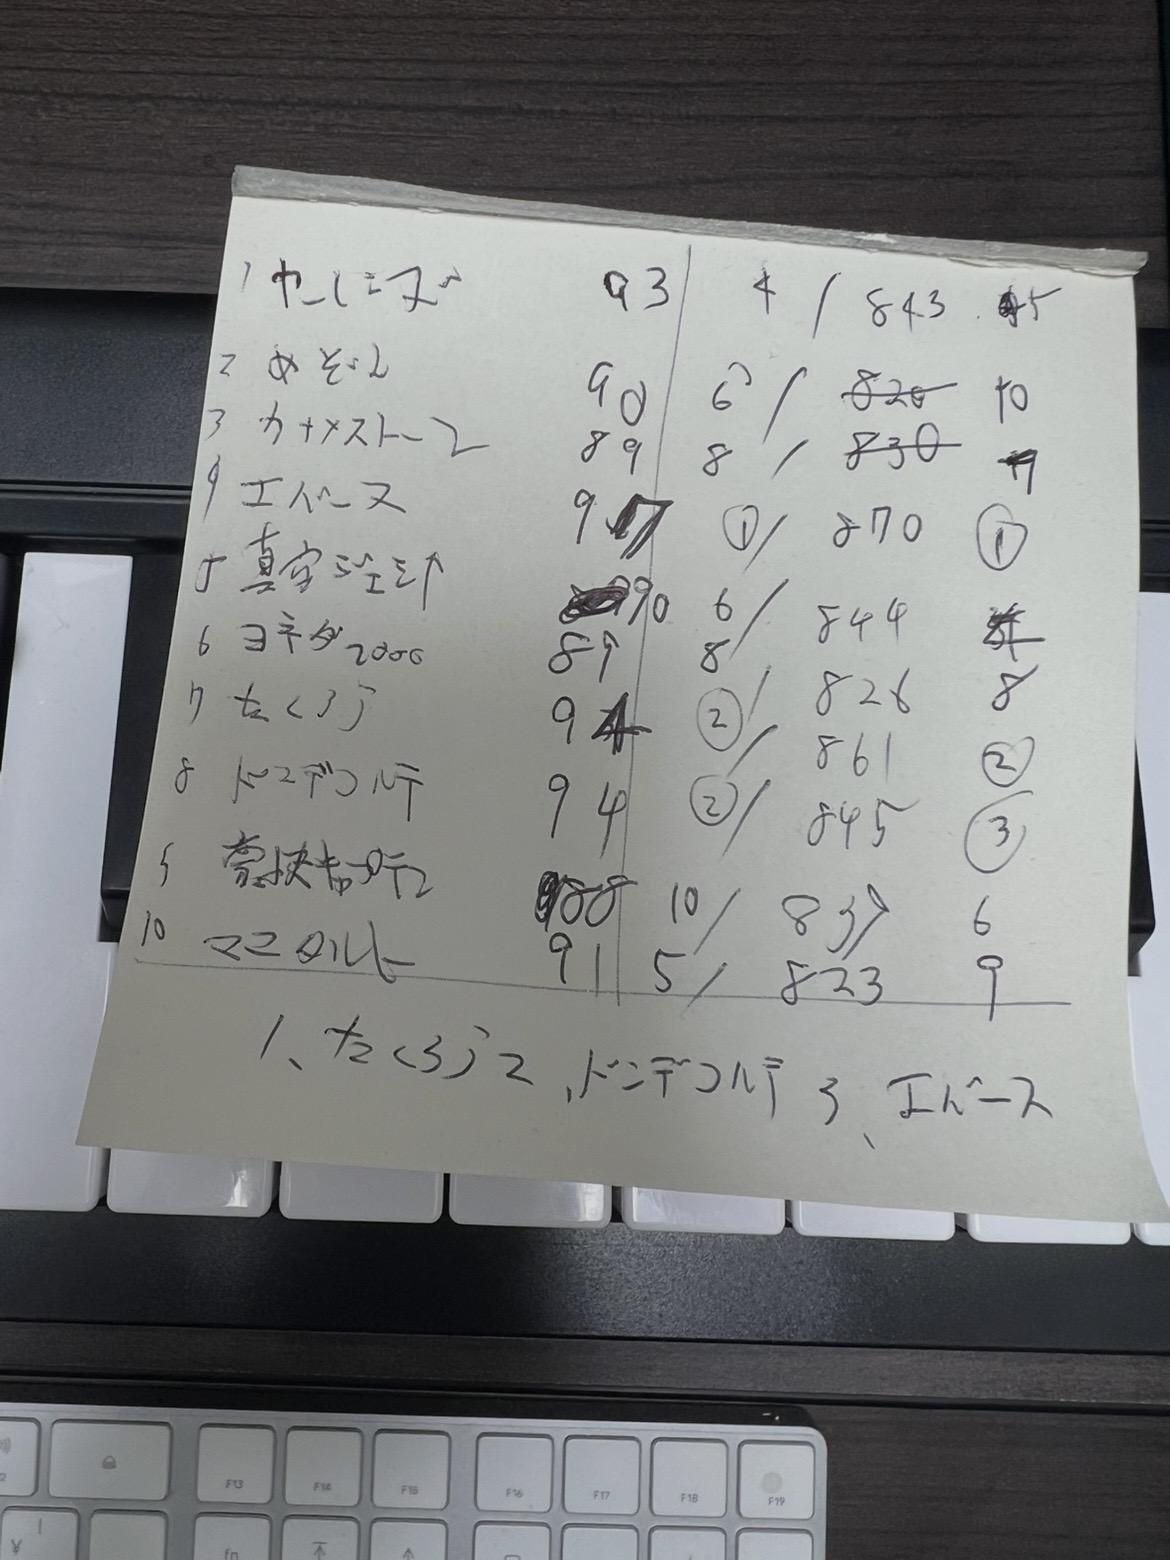 1 ヤーレンズ 93 4 / 843 5
2 めぞん 90 6 / 820 10
3 カナメストーン 89 8 / 830 7
4 エバース 97 ① / 870 ①
5 真空ジェシカ 90 6 / 844 4
6 ヨネダ2000 89 8 / 826 8
7 たくろう 94 ② / 861 ②
8 ドンデコルテ 94 ② / 845 ③
9 豪快キャプテン 88 10 / 837 6
10 ママタルト 91 5 / 823 9
1、たくろう 2、ドンデコルテ 3、エバース
F13
F14
F15
F16
F17
F18
F19
¥
fn